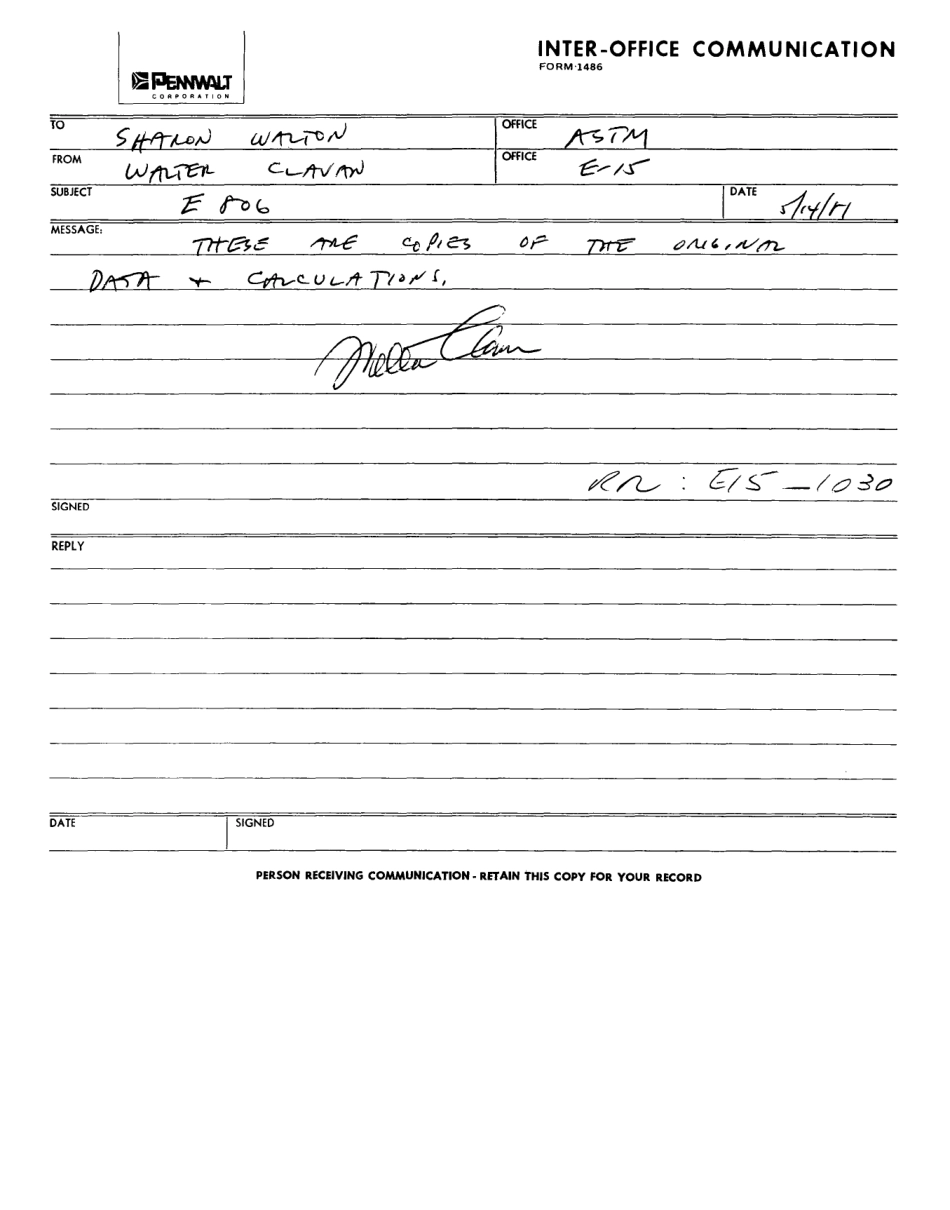 INTER-OFFICE COMMUNICATION
FORM-1486
PENNWALT
CORPORATION
TO SHARON WALTON OFFICE ASTM
FROM WALTER CLAVAN OFFICE E-15
SUBJECT E 806 DATE 5/14/81
MESSAGE: THESE ARE COPIES OF THE ORIGINAL
DATA + CALCULATIONS.
RR: E15-1030
SIGNED
REPLY
DATE SIGNED
PERSON RECEIVING COMMUNICATION - RETAIN THIS COPY FOR YOUR RECORD